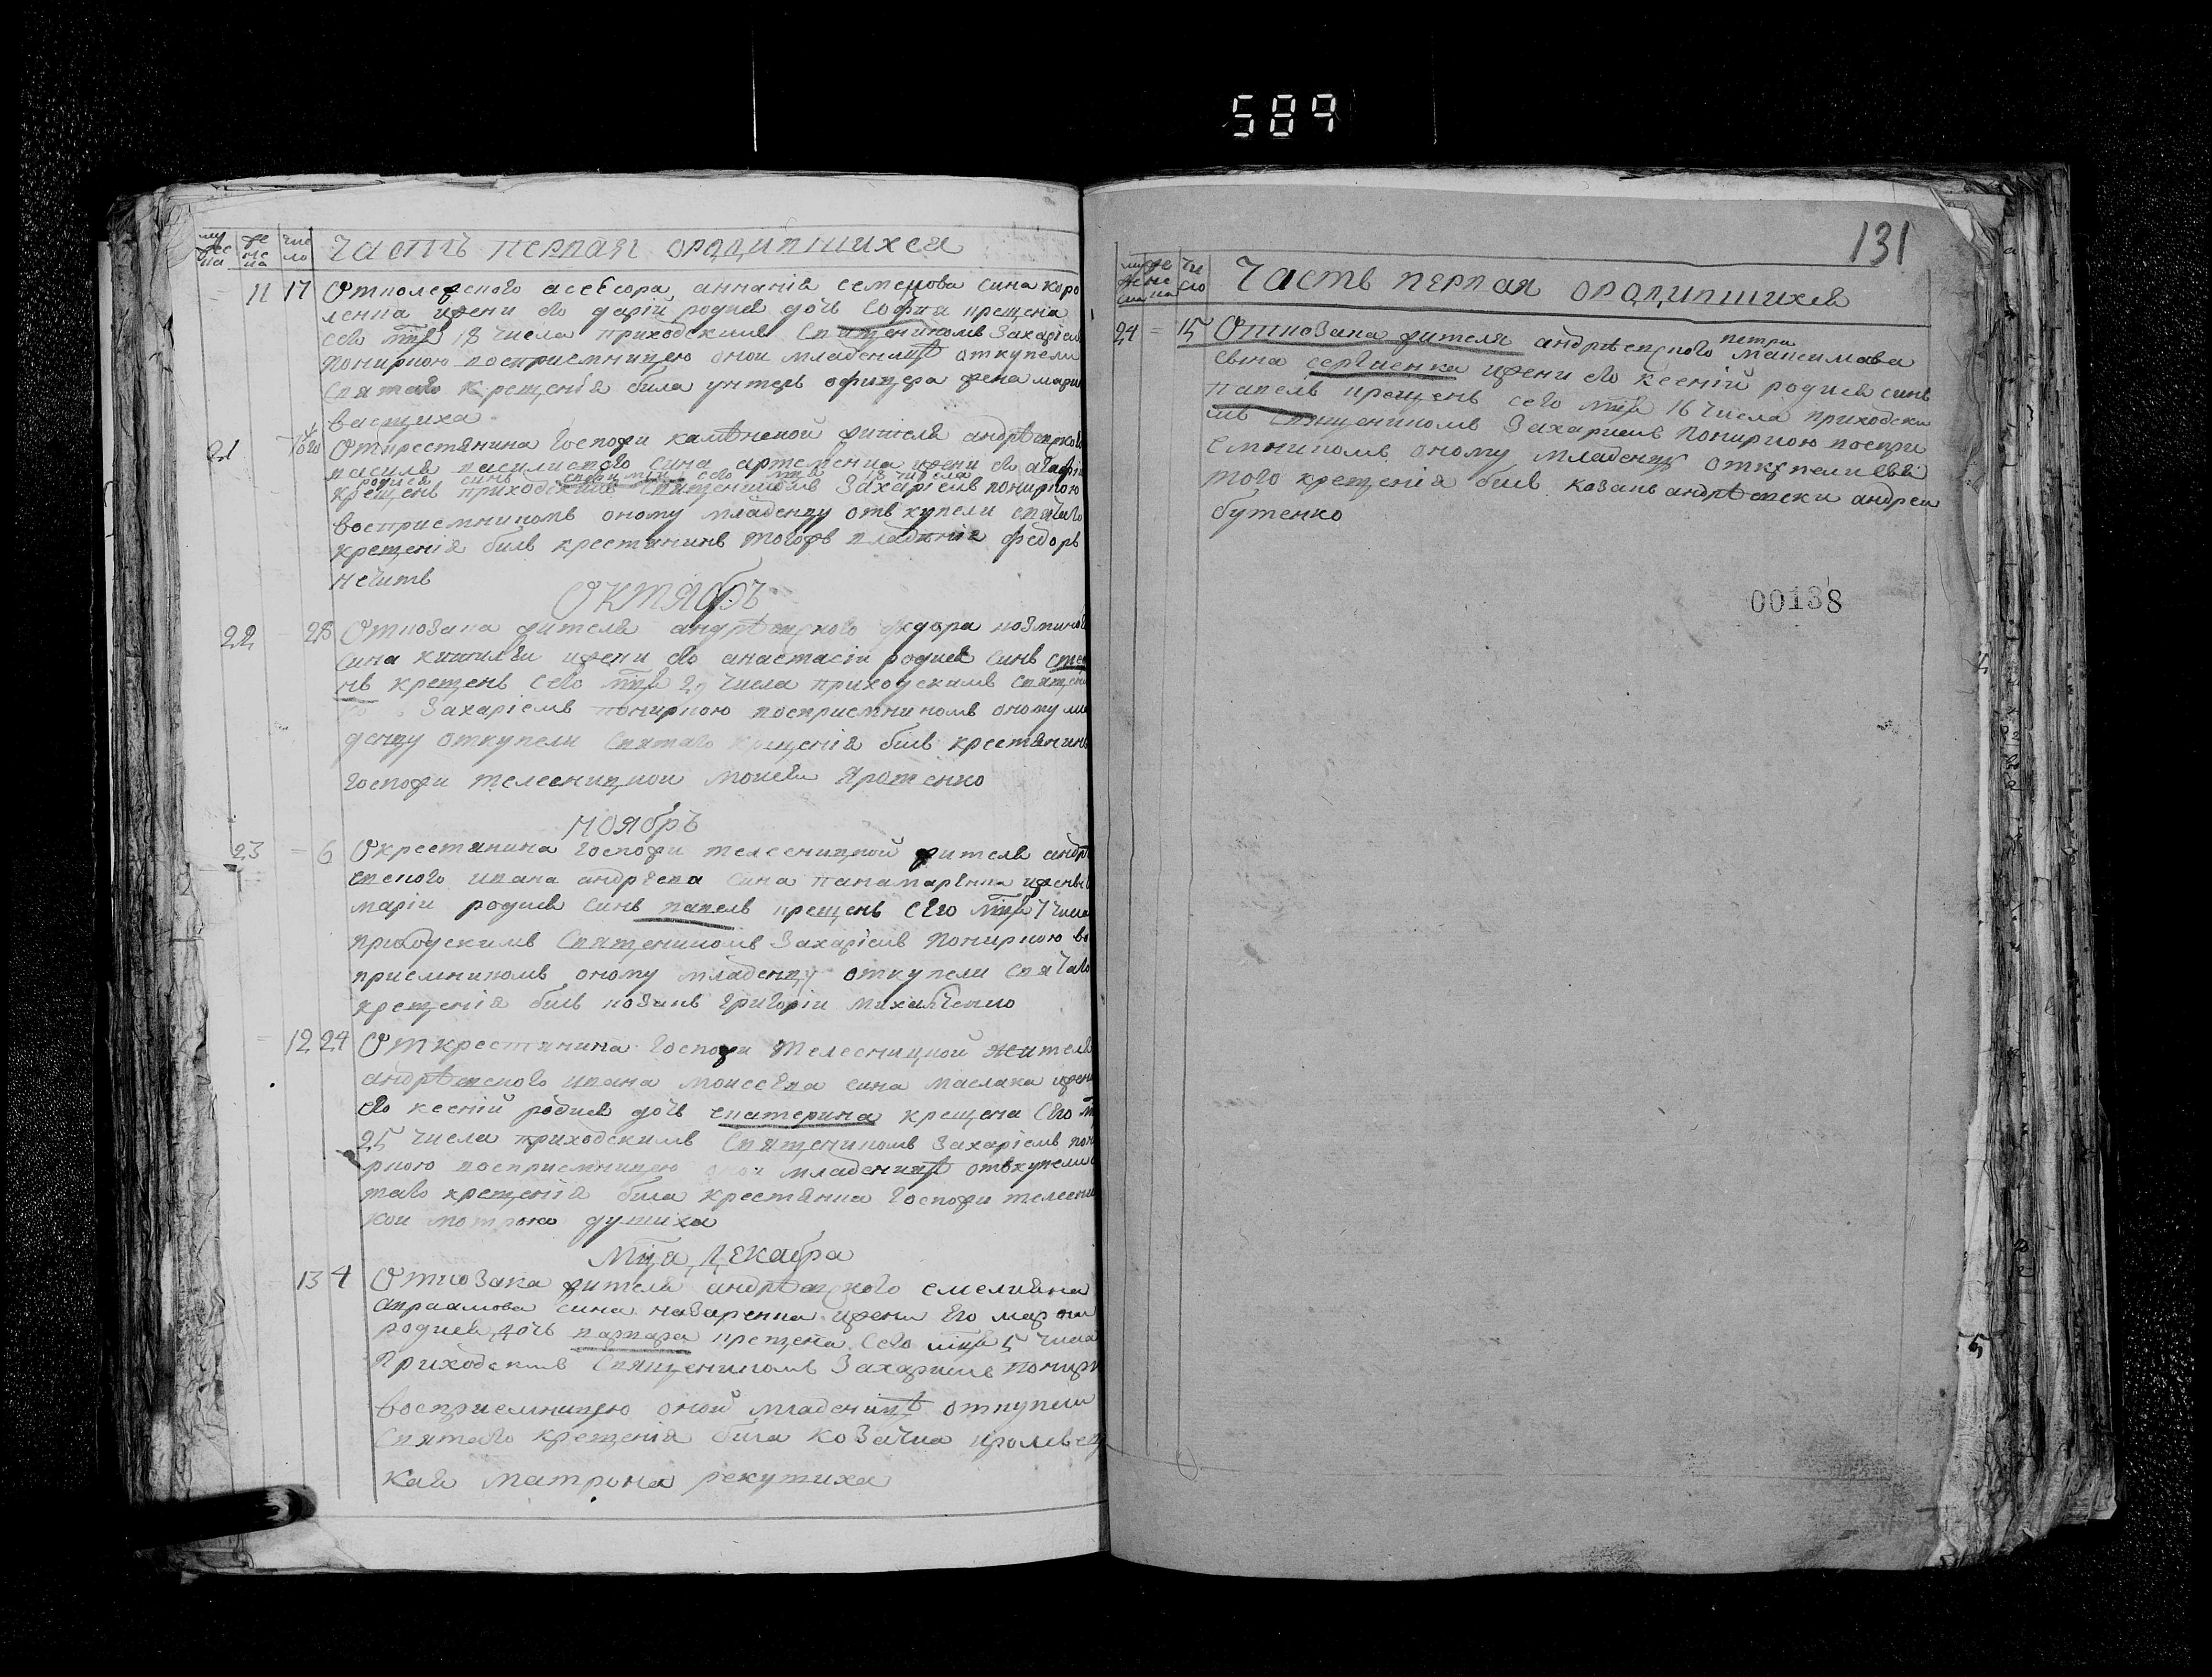 589
му жес ка
же нс ка
чис ло
Часть первая ородившихся
11 17 Отколежского асебсора анианія семенова сина коро
ленка ижени его дарій родися дочь Софія крещена
сего мца 18 числа приходскимъ Священикомъ Захаріем
Покиркою восприемницею оной младеницѣ откупели
Святаго Крещенія била унтеръ офицера жена марі
васциха
21 того Открестянина Госпожи каменской жителя андрѣевского
василя василиового сина артеменка ижени его агафи
родися синъ сего мца 18 числа
крещенъ приходскимъ Священикомъ Захаріемъ покиркою
восприемникомъ оному младенцу отъ купели святаго
крещенія билъ крестянинъ тогожъ владѣнія федоръ
нечитъ
Октябрь
22 28 Откозака жителя андрѣевского федора козминого
сина ижени его анастасіи родися синъ сте
нъ крещенъ сего мца 29 числа приходскимъ Священи
Захаріемъ покиркою восприемникомъ оному мла
денцу откупели Святаго крещенія билъ крестянинъ
госпожи телесницкой моисей яротенко
Ноябрь
23 = 6 Окрестянина госпожи телесницкой жителя андрѣ
евского ивана андреева сина панамаренка ижены
маріи родися синъ павелъ крещенъ сего мца 7 числа
приходскимъ Священикомъ Захаріемъ Покиркою во
приемникомъ оному младенцу откупели святаго
крещенія билъ козакъ григоріи михайленко
12 24 Открестянина госпожи Телесницкой жителя
андрѣевского ивана моисеева сина маслака ижени
его ксеній родися дочь екатерина крещена сего м
25 числа приходскимъ Священикомъ Захаріемъ пок
ркою восприемницею оной младеницѣ отъкупели
таго крещенія била крестянка госпожи телесни
кои мотрона душиха
Мца Декабра
13 4 Откозака жителя андрѣевского емелияна
авраамова сина назаренка ижени его марфи
родися дочь варвара крещена сего мца 5 числа
Приходскимъ Священикомъ Захариемъ Покирк
восприемницею оной младеницѣ откупели
Святаго крещенія била козачка кролевец
каго матрона рекутиха
131
му жес ска
же нс ка
чи сло
Часть первая ородившихся
24 = 15 Откозака жителя андрѣевского петра максимова
свина сергиенка ижени его ксеній родися синъ
Павелъ крещенъ сего мца 16 числа приходски
мъ Священикомъ Захариемъ Покиркою воспри
емникомъ оному младенцу откупели свя
того крещенія билъ козакъ андрѣевски андреи
бутенко
00138